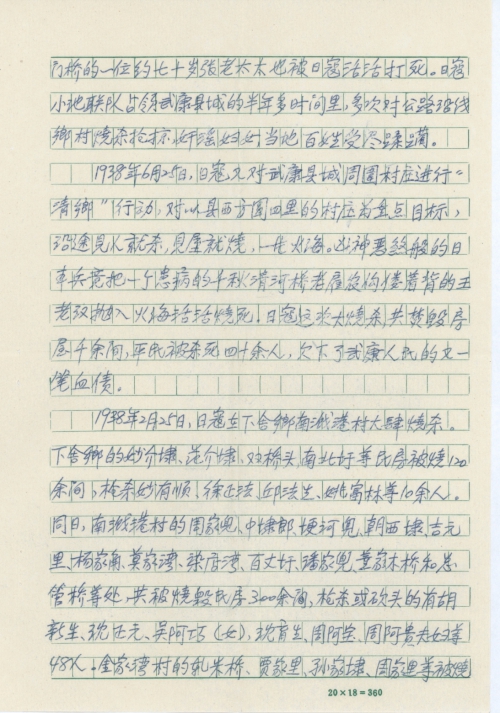 门桥的一位约七十岁张老太太也被日寇活活打死。日寇
小池联队占领武康县城的半年多时间里,多次对公路沿线
鄉村烧杀抢掠,奸淫妇女,当地百姓受尽蹂躏。
1938年6月25日,日寇又对武康县城周围村庄进行“
清鄉”行动,对以县西方圆四里的村庄为重点目标,
沿途见人就杀,见屋就烧,一片火海。凶神恶煞般的日
军兵竟把一个患病的千秋清河桥老屋佝偻着背的王
老汉抛入火海活活烧死!日寇这次大烧杀,共焚毁房
屋千余间,平民被杀死四十余人,欠下了武康人民的又一
笔血债。
1938年2月25日,日寇在下舍鄉南漵港村大肆烧杀。
下舍鄉的妙介埭、范介埭、双桥头、南北圩等民房被燒120
余间,枪杀妙有顺、徐正法、邱法生、姚富林等10余人。
同日,南漵港村的周家兜、中埭部、埂河兜、朝西埭、吉元
里、杨家角、莫家湾、梁店湾、百丈圩、潘家兜、董家木桥和总
管桥等处,共被燒毁民房300余间,枪杀或砍头的有胡
新生、沈正元、吴阿巧(女)、沈育生、周阿宝、周阿贵夫妇等
48人。金家塆村的轧米桥、贾家里、孙家埭、周家里等被燒
20×18=360